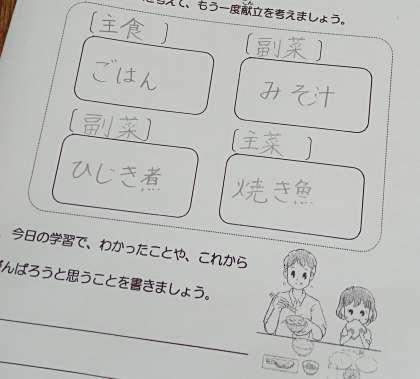 もう一度献立を考えましょう。
[主食]
ごはん
[副菜]
みそ汁
[副菜]
ひじき煮
[主菜]
焼き魚
今日の学習で、わかったことや、これから
がんばろうと思うことを書きましょう。